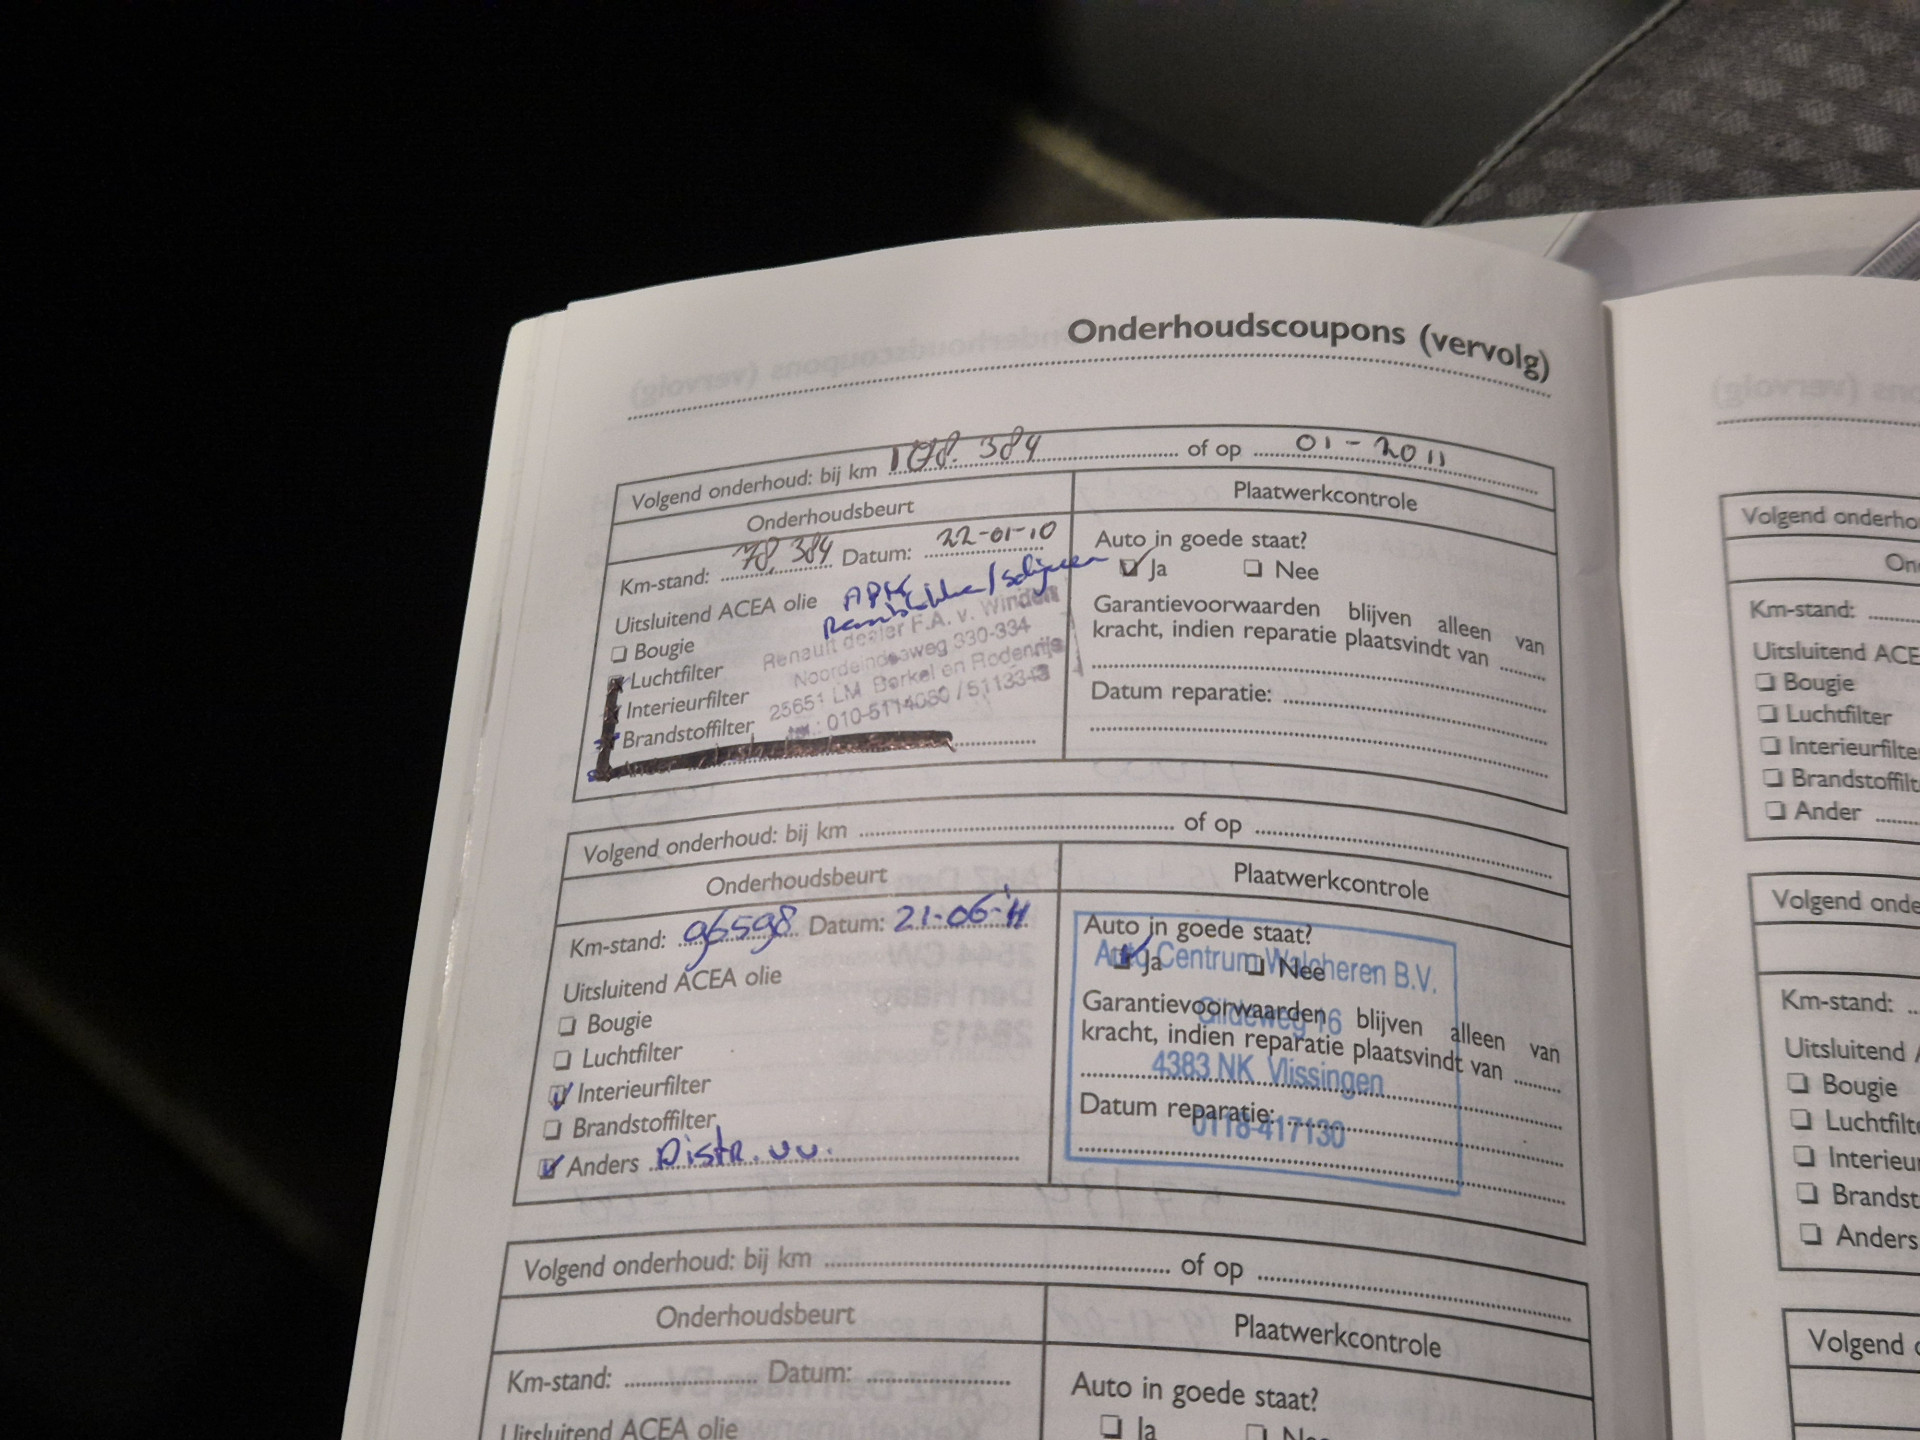 Onderhoudscoupons (vervolg)
Volgend onderhoud: bij km 108.384 of op 01-2011
Onderhoudsbeurt
Plaatwerkcontrole
Km-stand: 78.384 Datum: 22-01-10
Auto in goede staat?
Ja Nee
Uitsluitend ACEA olie APK
Bougie
Luchtfilter
Interieurfilter
Brandstoffilter
Renault dealer F.A. v. Winden
Noordeindseweg 330-334
25651 LM Berkel en Rodenrijs
tel.: 010-5114080 / 5113343
Garantievoorwaarden blijven alleen van
kracht, indien reparatie plaatsvindt van
Datum reparatie:
Volgend onderhoud: bij km of op
Onderhoudsbeurt
Plaatwerkcontrole
Km-stand: 96598 Datum: 21-06-'11
Uitsluitend ACEA olie
Bougie
Luchtfilter
Interieurfilter
Brandstoffilter
Anders Distr. vv.
Auto in goede staat?
Ja Nee
Garantievoorwaarden blijven alleen van
kracht, indien reparatie plaatsvindt van
Datum reparatie:
Auto Centrum Walcheren B.V.
Gildeweg 16
4383 NK Vlissingen
0118-417130
Volgend onderhoud: bij km of op
Onderhoudsbeurt
Plaatwerkcontrole
Km-stand: Datum:
Auto in goede staat?
Uitsluitend ACEA olie
Ja Nee
Volgend onderho
On
Km-stand:
Uitsluitend ACE
Bougie
Luchtfilter
Interieurfilte
Brandstoffilt
Ander
Volgend onde
Km-stand:
Uitsluitend
Bougie
Luchtfilt
Interieu
Brandst
Anders
Volgend